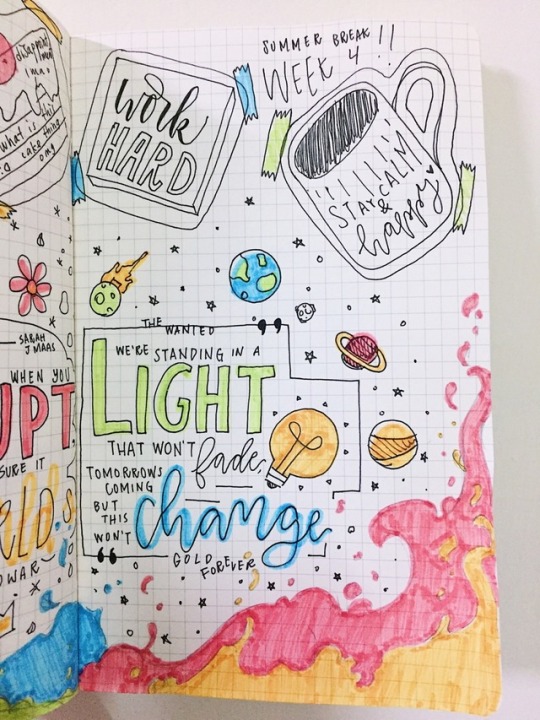 disappoint
ment
What is this
cake thing
omg
SARAH
J MAAS
WHEN YOU
UPT
SURE IT
RLD.S
DWAR
SUMMER BREAK!!
WEEK 4
work
HARD
STAY CALM
&
happy
THE WANTED
WE'RE STANDING IN A
LIGHT
THAT WON'T fade,
TOMORROWS
COMING
BUT
THIS
WON'T
change
GOLD FOREVER